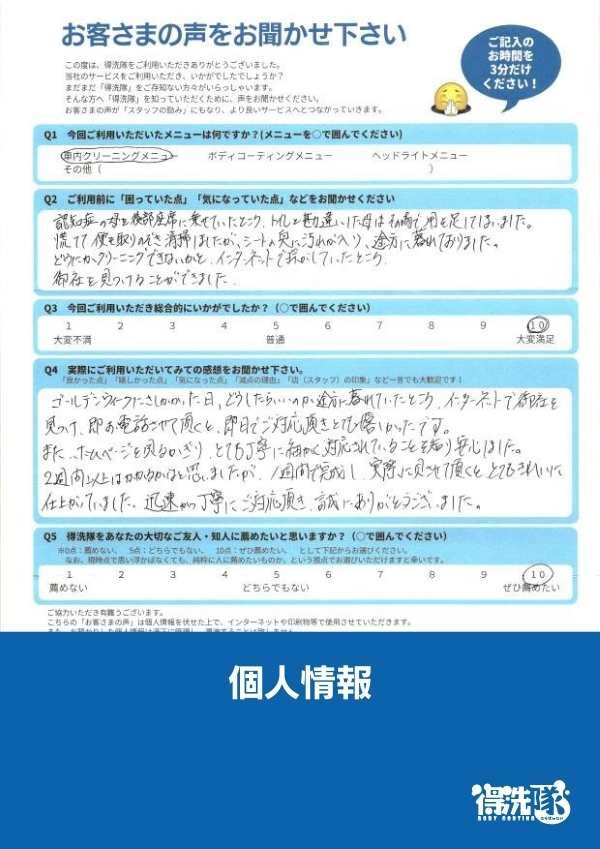 お客さまの声をお聞かせ下さい
ご記入の
お時間を
3分だけ
ください!
この度は、得洗隊をご利用いただきありがとうございました。
当社のサービスをご利用いただき、いかがでしたでしょうか?
まだまだ「得洗隊」をご存知ない方々がいらっしゃいます。
そんな方へ「得洗隊」を知っていただくために、声をお聞かせください。
お客さまの声が「スタッフの励み」にもなり、より良いサービスへとつながっていきます。
Q1 今回ご利用いただいたメニューは何ですか?(メニューを○で囲んでください)
車内クリーニングメニュー ボディコーティングメニュー ヘッドライトメニュー
その他( )
Q2 ご利用前に「困っていた点」「気になっていた点」などをお聞かせください
認知症の母を後部座席に乗せていたところ、トイレと勘違いした母はその場で用を足してしまいました。
慌てて便を取りのぞき清掃はしたが、シートの奥に汚れが入り、途方に暮れておりました。
どうにかクリーニングできないかと、インターネットで探がしていたところ
御社を見つけることができました。
Q3 今回ご利用いただき総合的にいかがでしたか?(○で囲んでください)
1 2 3 4 5 6 7 8 9 10
大変不満 普通 大変満足
Q4 実際にご利用いただいてみての感想をお聞かせ下さい。
「良かった点」「嬉しかった点」「気になった点」「減点の理由」「店(スタッフ)の印象」など一言でも大歓迎です!
ゴールデンウィークにさしかかった日、どうしたらいいのか途方に暮れていたところ、インターネットで御社を
見つけ、即お電話させて頂くと、即日でご対応頂きとても嬉しかったです。
また、ホームページを見るかぎり、とても丁寧に細かく対応されていることを知り安心しました。
2週間以上はかかるかなと思いましたが、1週間で完成し、実際に見させて頂くと、とてもきれいに
仕上がっていました。迅速かつ丁寧にご対応頂き、誠にありがとうございました。
Q5 得洗隊をあなたの大切なご友人・知人に薦めたいと思いますか?(○で囲んでください)
※0点:薦めない、 5点:どちらでもない、 10点:ぜひ薦めたい、 として下記からお選びください。
なお、現時点で思い浮かばなくても、純粋に人に薦めたいものか、という視点でお選びいただけますと幸いです。
1 2 3 4 5 6 7 8 9 10
薦めない どちらでもない ぜひ薦めたい
ご協力いただき有難うございます。
こちらの「お客さまの声」は個人情報を伏せた上で、インターネットや印刷物等で使用させていただきます。
個人情報
得洗隊